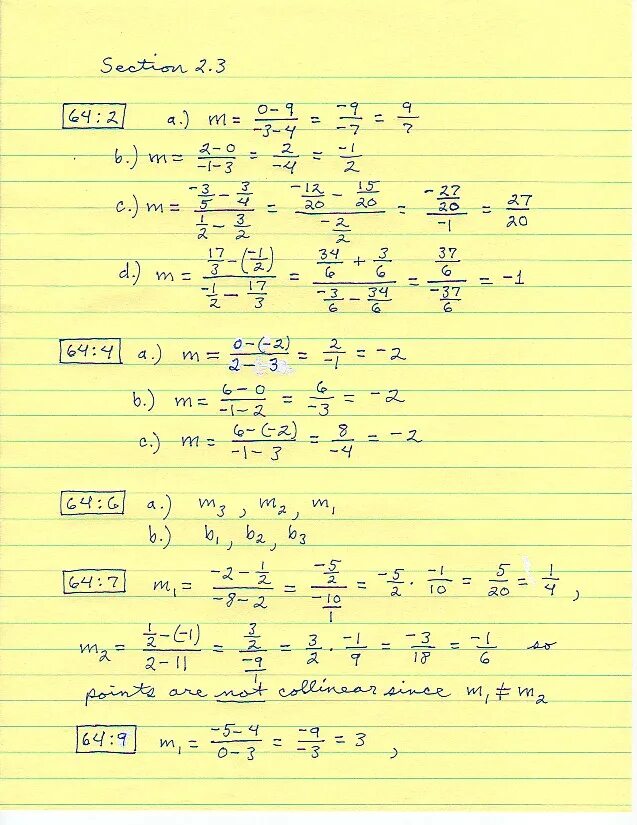 Section 2.3
64:2 a.) m = (0-9)/(-3-4) = -9/-7 = 9/7
b.) m = (2-0)/(-1-3) = 2/-4 = -1/2
c.) m = (-3/5 - 3/4)/(1/2 - 3/2) = (-12/20 - 15/20)/(-2/2) = (-27/20)/-1 = 27/20
d.) m = (17/3 - (-1/2))/(-1/2 - 17/3) = (34/6 + 3/6)/(-3/6 - 34/6) = (37/6)/(-37/6) = -1
64:4 a.) m = (0-(-2))/(2-3) = 2/-1 = -2
b.) m = (6-0)/(-1-2) = 6/-3 = -2
c.) m = (6-(-2))/(-1-3) = 8/-4 = -2
64:6 a.) m₃, m₂, m₁
b.) b₁, b₂, b₃
64:7 m₁ = (-2 - 1/2)/(-8-2) = (-5/2)/(-10/1) = -5/2 · -1/10 = 5/20 = 1/4,
m₂ = (1/2 - (-1))/(2-11) = (3/2)/(-9/1) = 3/2 · -1/9 = -3/18 = -1/6 so
points are not collinear since m₁ ≠ m₂
64:9 m₁ = (-5-4)/(0-3) = -9/-3 = 3,